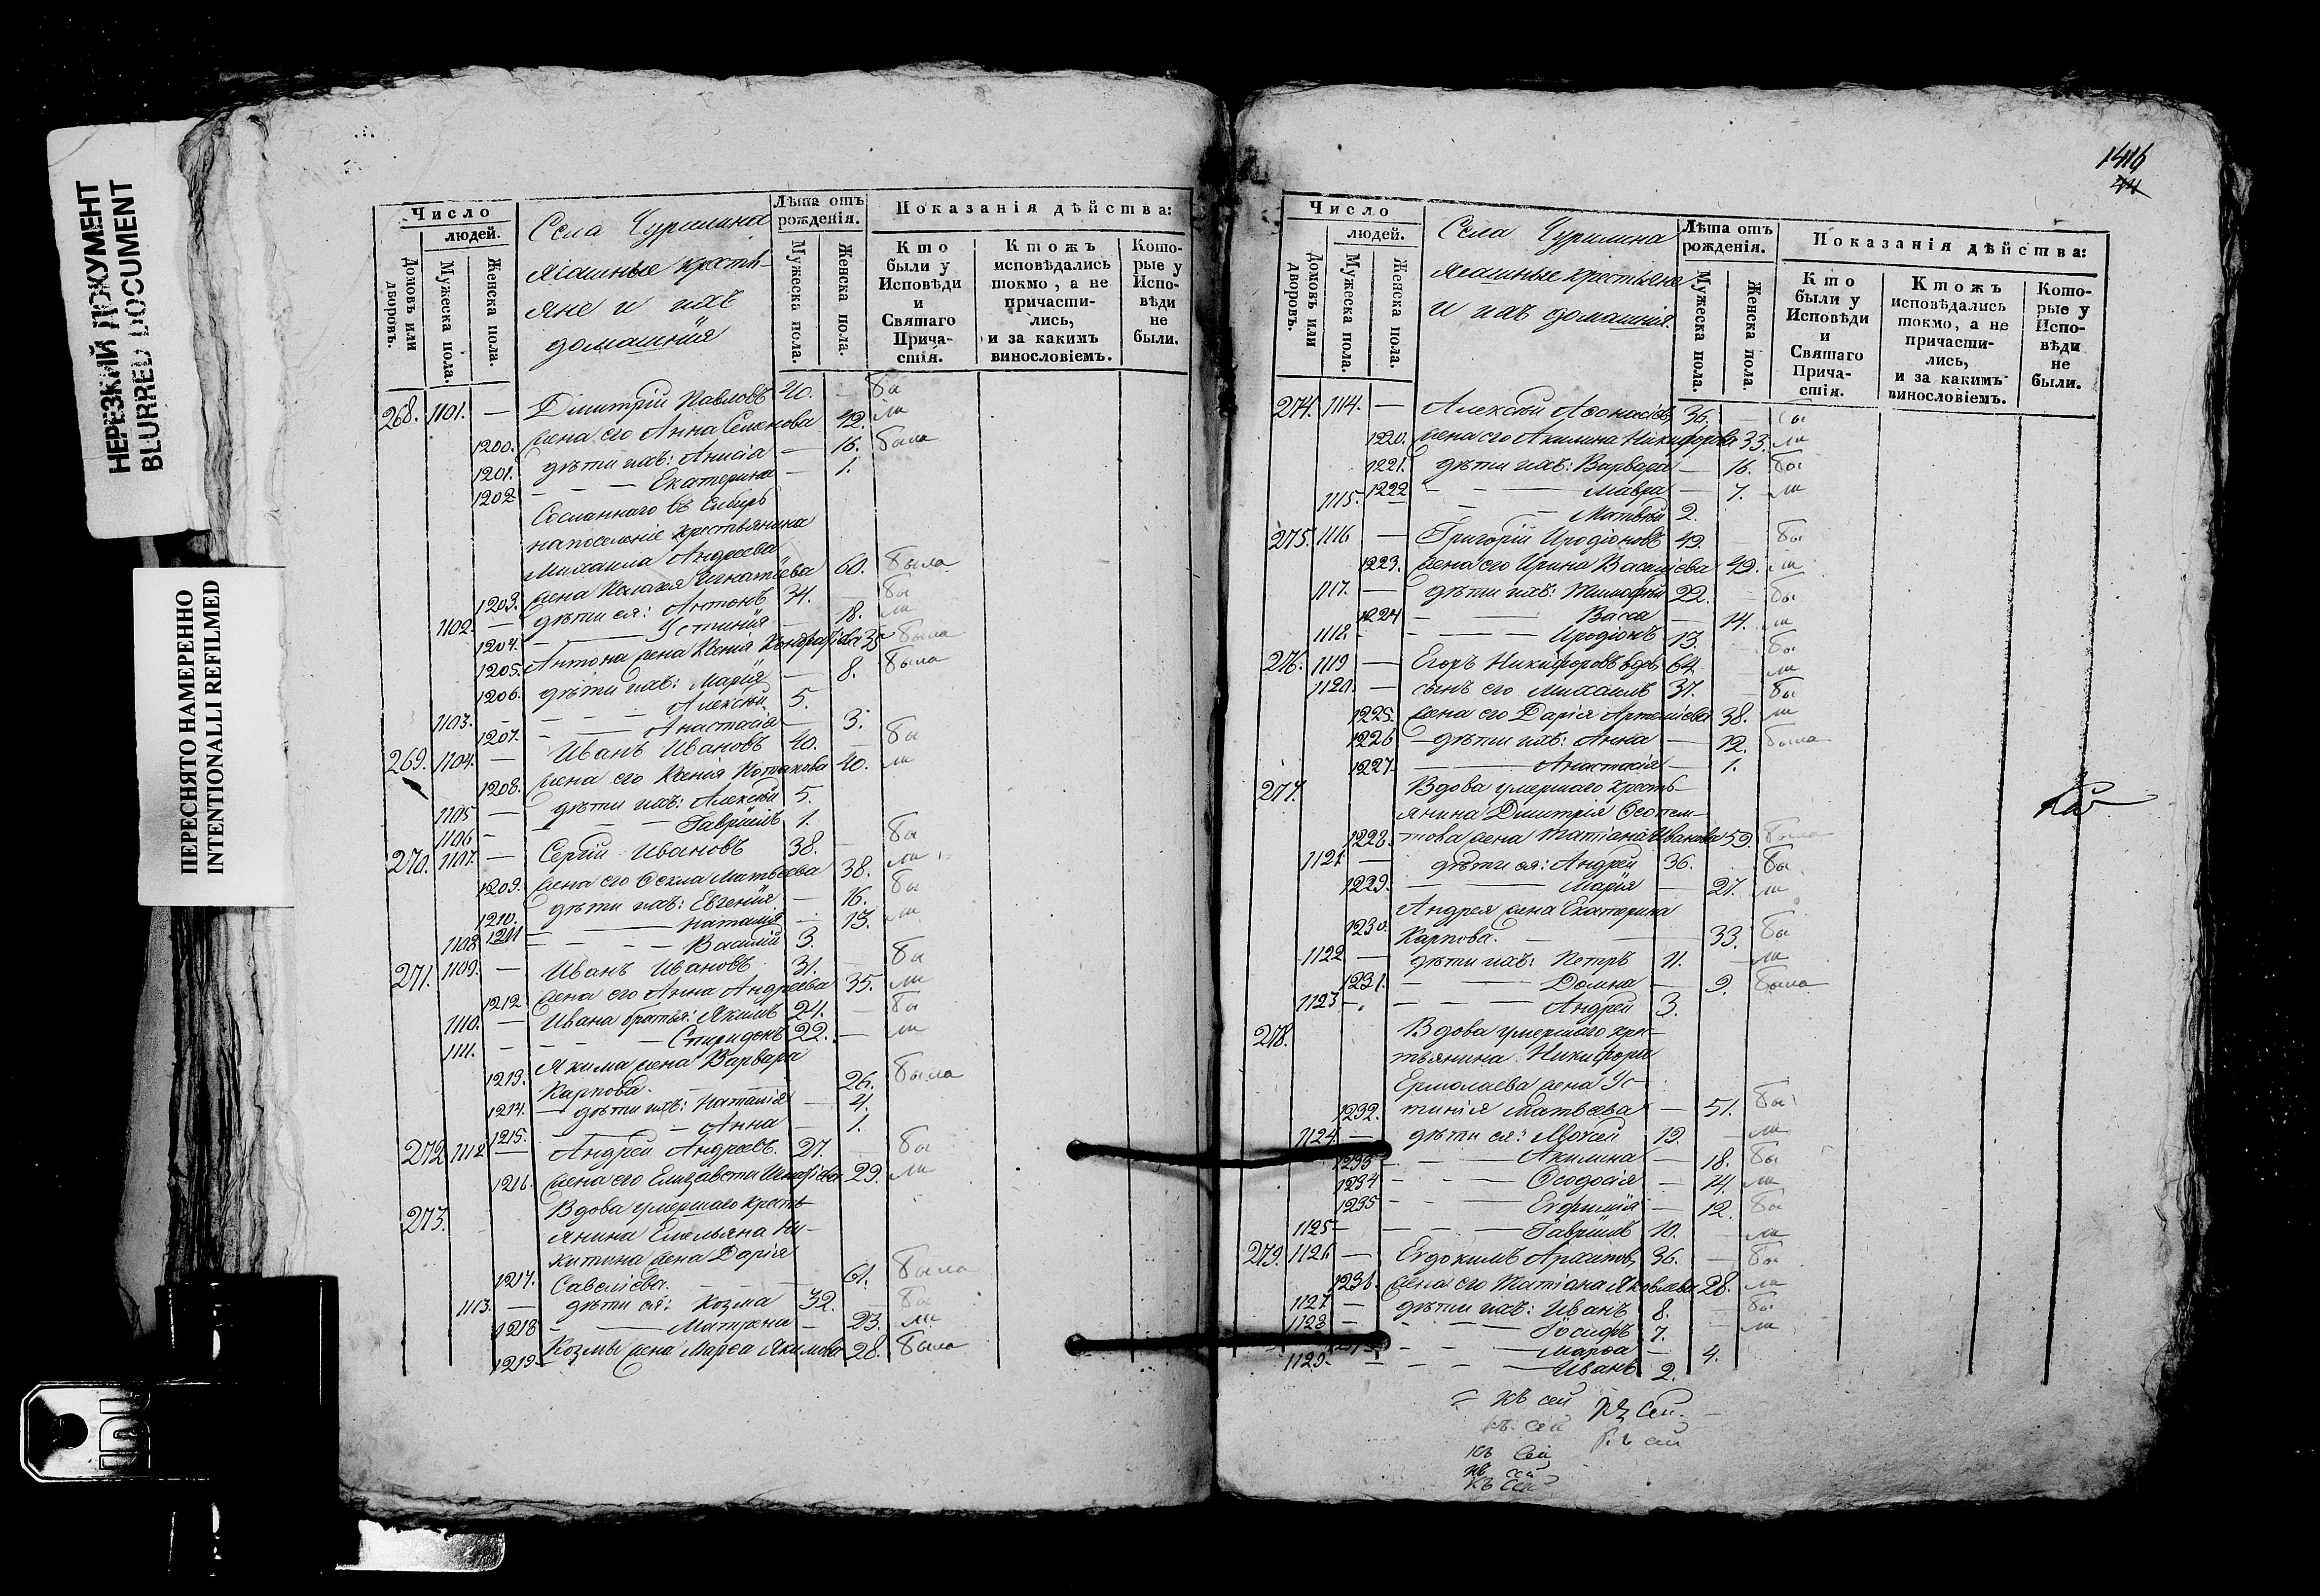 НЕРЕЗКИЙ ДОКУМЕНТ
BLURRED DOCUMENT
ПЕРЕСНЯТО НАМЕРЕННО
INTENTIONALLI REFILMED
Число
людей.
Домовъ или дворовъ.
Мужеска пола.
Женска пола.
Села Чурилина
ясашные кресть-
яне и ихъ
домашнія
Лѣта отъ рожденія.
Мужеска пола.
Женска пола.
Показанія дѣйства:
Кто были у Исповѣди и Святаго Причастія.
Ктожъ исповѣдались токмо, а не причастились, и за какимъ винословіемъ.
Которые у Исповѣди не были.
268. 1101. — Дмитрій Павловъ 40. — бы
1200. жена его Анна Семенова 42. ли
1201. дѣти ихъ: Анисіа — 16. была
1202 — — — Екатерина — 1.
Сосланнаго въ Сибирь
напоселеніе крестьянина
Михаила Андреева
1203. жена Пелагея Игнатіева 60. была
1102. — дѣти ея: Антонъ 34. — бы
1204. — Устинія — 18. ли
1205. Антона жена Ксенія 35 была
1206. дѣти ихъ: Марія — 8. была
1103. — — — — Алексѣй 5.
1207. — — Анастасіа — 3.
269. 1104. — Иванъ Ивановъ 40. — бы
1208. жена его Ксенія Потапова 40. ли
1105 — дѣти ихъ: Алексѣй 5.
1106 — — — — Гавріилъ 1.
270. 1107. — Сергій Ивановъ 38. — бы
1209. жена его Ѳекла Матвѣева 38. ли
1210. дѣти ихъ: Евгенія — 16. бы
1211 — — Наталія — 13. ли
1108 — — — Василій 3.
271. 1109. — Иванъ Ивановъ 31. — бы
1212 жена его Анна Андреева 35. ли
1110. — Ивана братья: Якимъ 24. — бы
1111. — — — — Спиридонъ 22. — ли
Якима жена Варвара
1213. Карпова. — 26. была
1214. — дѣти ихъ: Наталія — 4.
1215. — — — Анна — 1.
272 1112 — Андрей Андреевъ. 27. — бы
1216. жена его Елизавета Игнатіева 29. ли
273. Вдова умершаго кресть-
янина Емельяна Ни-
китина жена Дарія
1217. Савеліева. — — — 61. была
1113. — дѣти ея: Козма 32. — бы
1218 — Матрена — 23. ли
1219 — Козмы жена Марѳа Якимова 28. была
1416
44
Число
людей.
Домовъ или дворовъ.
Мужеска пола.
Женска пола.
Села Чурилина
ясашные крестьяне
и ихъ домашнія.
Лѣта отъ рожденія.
Мужеска пола.
Женска пола.
Показанія дѣйства:
Кто были у Исповѣди и Святаго Причастія.
Ктожъ исповѣдались токмо, а не причастились, и за какимъ винословіемъ.
Которые у Исповѣди не были.
274. 1114. — Алексѣй Аѳонасіевъ 36. — бы
1220. жена его Акилина Никифорова 33. ли
1221. дѣти ихъ: Варвара — 16. бы
1222 — — — Мавра — 7. ли
1115. — — — Матвѣй 2.
275. 1116 — Григорій Иродіоновъ 49. — бы
1223. жена его Ирина Василіева 49. ли
1117. — дѣти ихъ: Тимоѳей 22. — бы
1224 — — Васса — 14. ли
1118. — — — Иродіонъ 13. — бы
276. 1119 — Егоръ Никифоровъ вдов 64. — ли
1120. — сынъ его Михаилъ 37. — бы
1225. жена его Дарія Артеміева 38. ли
1226 — дѣти ихъ: Анна — 12. была
1227. — Анастасія — 1.
277. Вдова умершаго кресть-
янина Дмитрія Ѳеопем-
1228. това жена Татіана Иванова 59. была
1121 — дѣти ея: Андрей 36. — бы
1229. — — Марія — 27. ли
Андрея жена Екатерина
1230. Карпова. — 33. бы
1122 — дѣти ихъ: Петръ 11. — ли
1231. — — Домна — 9. была
1123 — — — Андрей 3.
278. Вдова умершаго крес-
тьянина Никифора
Ермолаева жена Ус-
1232. тинія Матвѣева — 51. бы
1124 — дѣти ея: Моѵсей 19. — ли
1233 — — — Акилина — 18. бы
1234 — — Ѳеодосія — 14. ли
1235 — — Евфимія — 12. бы
1125 — — — Гавріилъ 10. — ли
279. 1126 — Евдокимъ 36. — бы
1236. жена его Татіана Яковлева 28. ли
1127. — дѣти ихъ: Иванъ 8. — бы
1128 — — Іосифъ 7. — ли
— — Марѳа — 4.
1129 — — — Иванъ 2.
къ сей
къ сей.
къ сей
къ сей
къ сей
къ сей